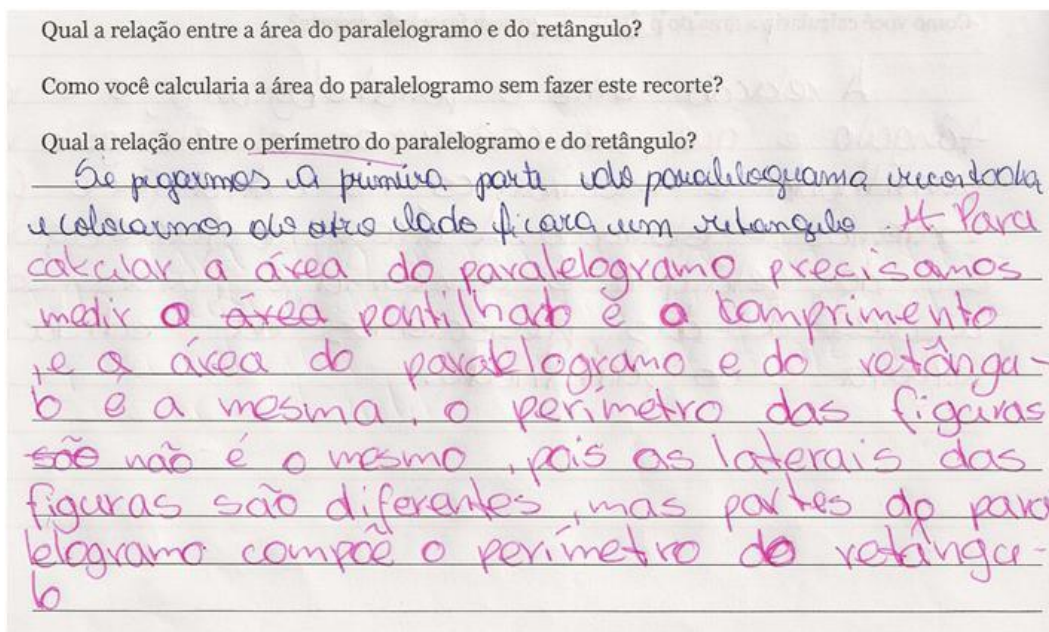 Qual a relação entre a área do paralelogramo e do retângulo?
Como você calcularia a área do paralelogramo sem fazer este recorte?
Qual a relação entre o perímetro do paralelogramo e do retângulo?
Se pegarmos a primeira parte do paralelograma recortada
e colocarmos do otro lado ficara um retangulo Para
calcular a área do paralelogramo precisamos
medir o área pontilhado e o comprimento
, e a área do paralelogramo e do retângu-
lo é a mesma, o perímetro das figuras
são não é o mesmo, pois as laterais das
figuras são diferentes, mas partes do para
lelogramo compõe o perímetro do retângu-
lo